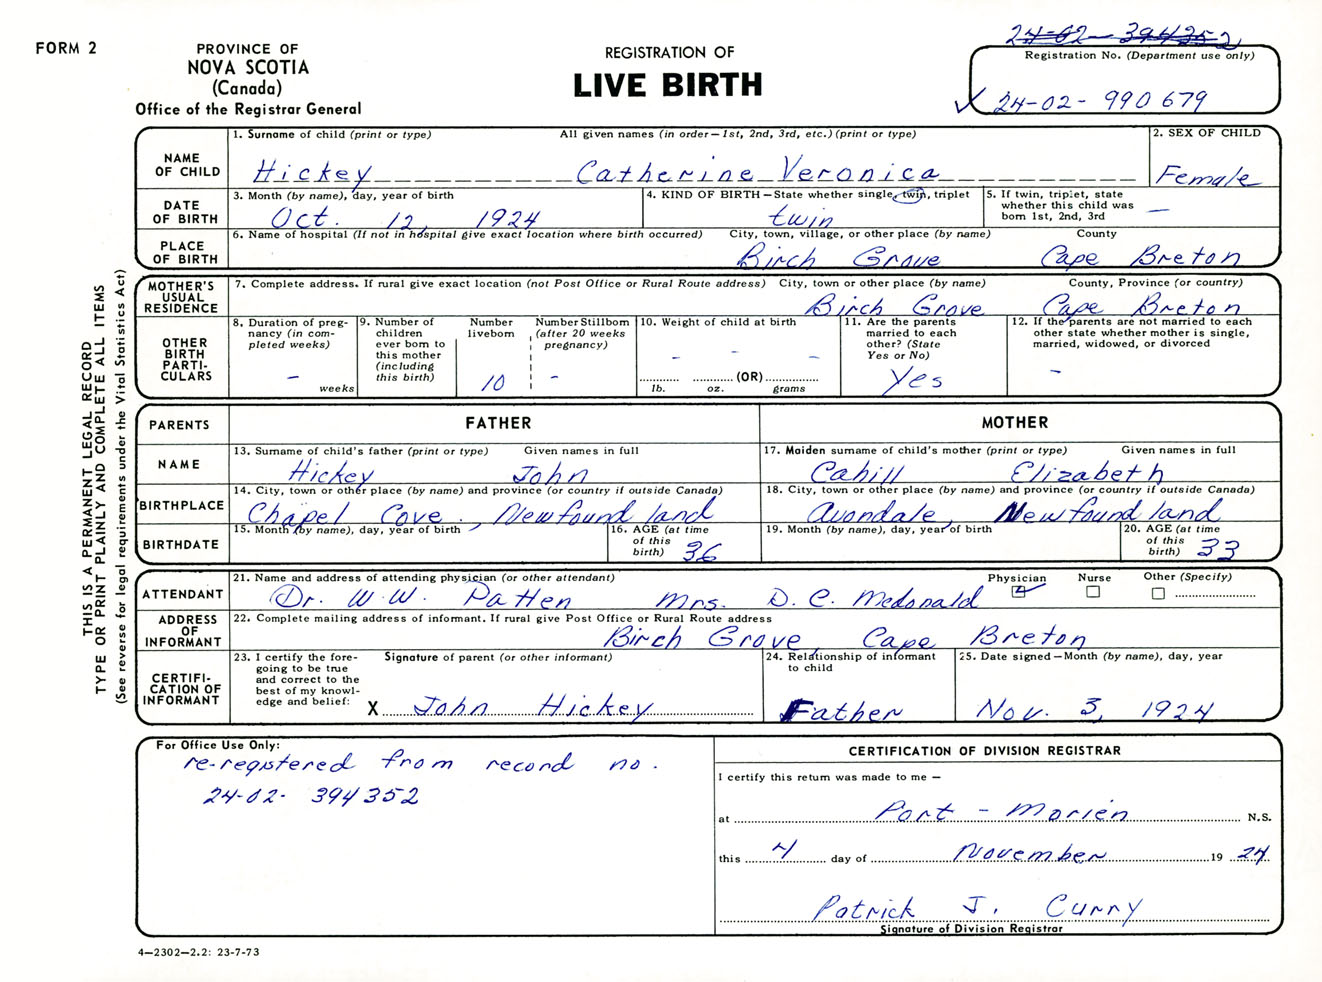 FORM 2
PROVINCE OF
NOVA SCOTIA
(Canada)
Office of the Registrar General
REGISTRATION OF
LIVE BIRTH
24-02-394352
Registration No. (Department use only)
✓ 24-02-990679
THIS IS A PERMANENT LEGAL RECORD
TYPE OR PRINT PLAINLY AND COMPLETE ALL ITEMS
(See reverse for legal requirements under the Vital Statistics Act)
NAME
OF CHILD
1. Surname of child (print or type) All given names (in order—1st, 2nd, 3rd, etc.) (print or type)
Hickey Catherine Veronica
2. SEX OF CHILD
Female
DATE
OF BIRTH
3. Month (by name), day, year of birth
Oct. 12, 1924
4. KIND OF BIRTH—State whether single, twin, triplet
twin
5. If twin, triplet, state
whether this child was
born 1st, 2nd, 3rd
—
PLACE
OF BIRTH
6. Name of hospital (If not in hospital give exact location where birth occurred) City, town, village, or other place (by name) County
Birch Grove Cape Breton
MOTHER'S
USUAL
RESIDENCE
7. Complete address. If rural give exact location (not Post Office or Rural Route address) City, town or other place (by name) County, Province (or country)
Birch Grove Cape Breton
OTHER
BIRTH
PARTI-
CULARS
8. Duration of preg-
nancy (in com-
pleted weeks)
—
weeks
9. Number of
children
ever born to
this mother
(including
this birth)
Number
liveborn
10
Number Stillborn
(after 20 weeks
pregnancy)
-
10. Weight of child at birth
- - -
(OR)
lb. oz. grams
11. Are the parents
married to each
other? (State
Yes or No)
Yes
12. If the parents are not married to each
other state whether mother is single,
married, widowed, or divorced
-
PARENTS
FATHER
MOTHER
NAME
13. Surname of child's father (print or type) Given names in full
Hickey John
17. Maiden surname of child's mother (print or type) Given names in full
Cahill Elizabeth
BIRTHPLACE
14. City, town or other place (by name) and province (or country if outside Canada)
Chapel Cove, Newfoundland
18. City, town or other place (by name) and province (or country if outside Canada)
Avondale, Newfoundland
BIRTHDATE
15. Month (by name), day, year of birth
16. AGE (at time
of this
birth) 36
19. Month (by name), day, year of birth
20. AGE (at time
of this
birth) 33
ATTENDANT
21. Name and address of attending physician (or other attendant)
Dr. W.W. Patten Mrs. D.C. Mcdonald
Physician Nurse Other (Specify)
ADDRESS
OF
INFORMANT
22. Complete mailing address of informant. If rural give Post Office or Rural Route address
Birch Grove, Cape Breton
CERTIFI-
CATION OF
INFORMANT
23. I certify the fore-
going to be true
and correct to the
best of my knowl-
edge and belief:
Signature of parent (or other informant)
X John Hickey
24. Relationship of informant
to child
Father
25. Date signed—Month (by name), day, year
Nov. 3, 1924
For Office Use Only:
re-registered from record no.
24-02- 394352
CERTIFICATION OF DIVISION REGISTRAR
I certify this return was made to me —
at Port - Morien N.S.
this 4 day of November 19 24
Patrick J. Curry
Signature of Division Registrar
4—2302—2.2: 23-7-73